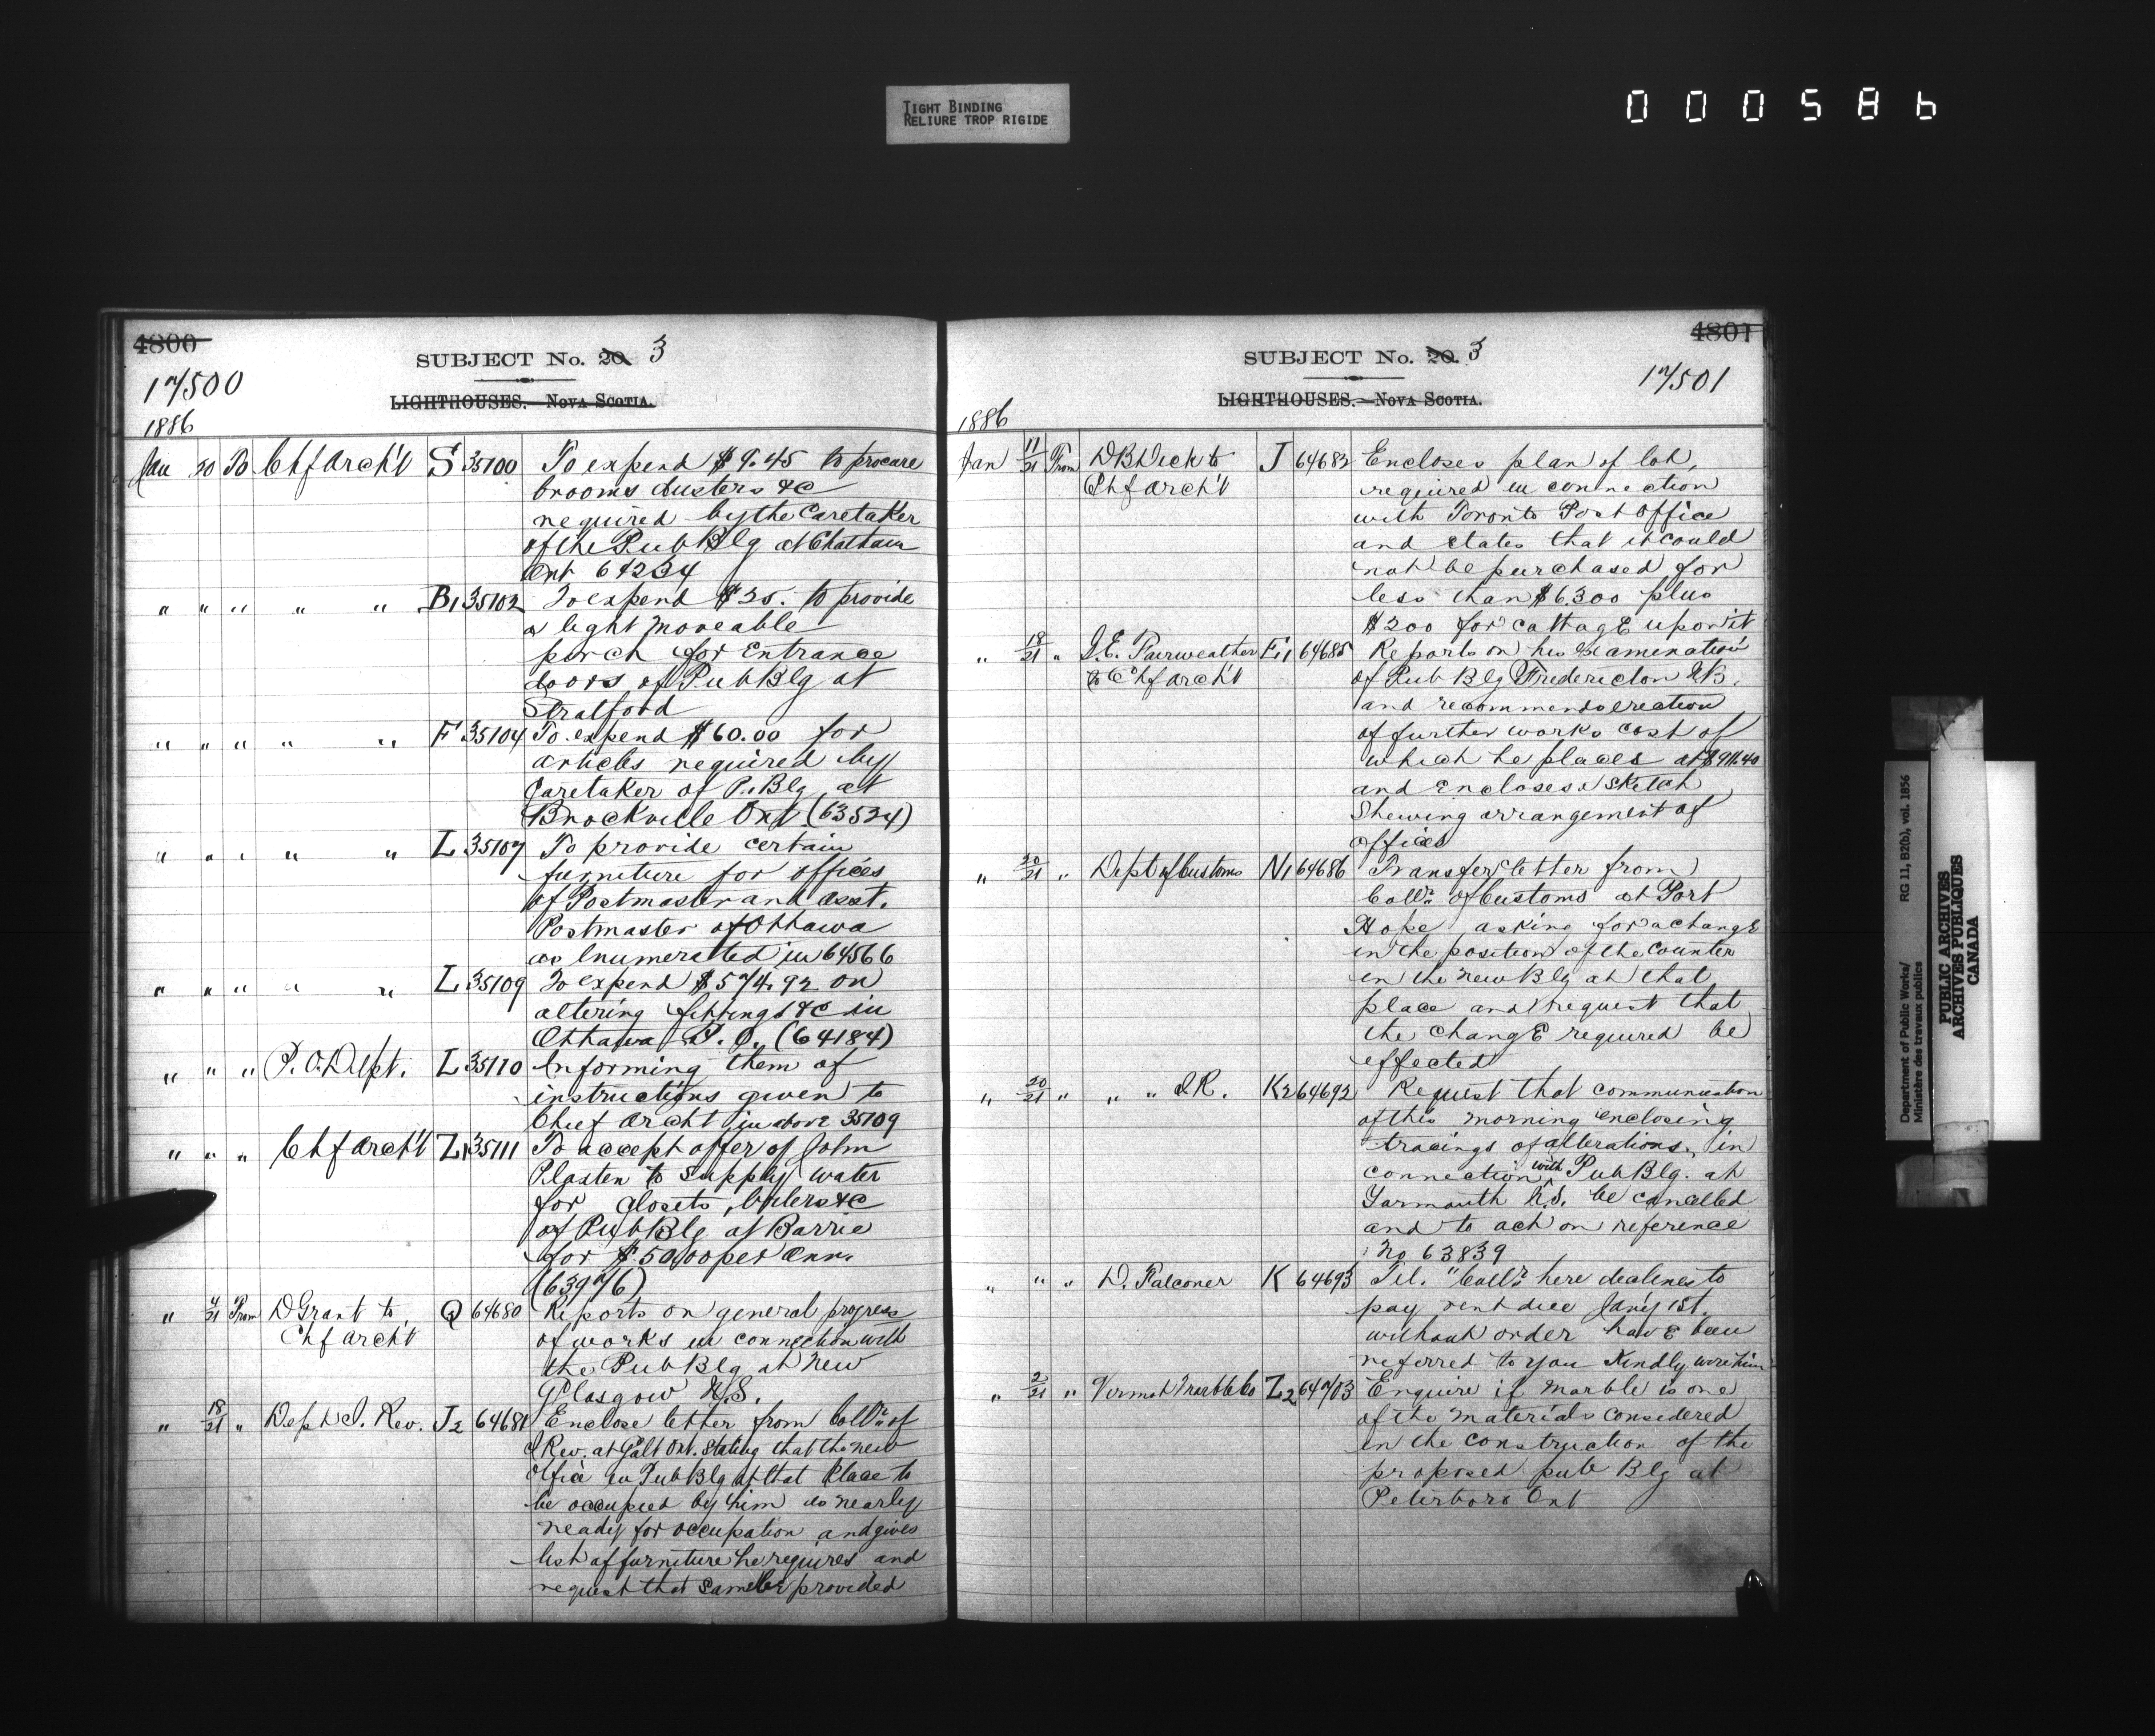 TIGHT BINDING
RELIURE TROP RIGIDE
000586
4800
SUBJECT No. 20. 3
17500
LIGHTHOUSES.—Nova Scotia.
1886
Jan 20 To Chf Arch't S 35100 To expend $9.45 to procure
brooms dusters &c
required by the Caretaker
of the Pub Blg at Chatham
Ont 64234
" " " " " B1 35102 To expend $25. to provide
a light moveable
porch for Entrance
doors of Pub Blg at
Stratford
" " " " " F 35104 To expend $60.00 for
articles required by
Caretaker of P. Blg at
Brockville Ont (63524)
" " " " " L 35107 To provide certain
furniture for offices
of Postmaster and Asst.
Postmaster of Ottawa
as Enumerated in 64566
" " " " " L 35109 To expend $574.92 on
altering fittings &c in
Ottawa P.O. (64184)
" " " P.O. Dept. L 35110 Informing them of
instructions given to
Chief Archt in above 35109
" " " Chf Arch't Z1 35111 To accept offer of John
Plaxten to supply water
for closets, boilers &c
of Pub Blg at Barrie
for $50.00 per Ann.
(63976)
" 4/21 From D Grant to Q 64680 Reports on general progress
Chf Arch't of works in connection with
the Pub Blg at New
Glasgow N.S.
" 18/21 " Dept I. Rev. J2 64681 Enclose letter from Collr of
I Rev. at Galt Ont. Stating that the new
Office in Pub Blg at that Place to
be occupied by him is nearly
ready for occupation and gives
list of furniture he requires and
request that same be provided
4801
SUBJECT No. 20. 3
17501
LIGHTHOUSES.—Nova Scotia.
1886
Jan 11/21 From D B Dick to J 64682 Encloses plan of lot,
Chf Arch't required in connection
with Toronto Post Office
and states that it could
not be purchased for
less than $6300 plus
$200 for cottage upon it
" 18/21 " G.E. Fairweather E1 64685 Reports on his Examination
to Chf Arch't of Pub Blg Fredericton N.B.
and recommends erection
of further works cost of
which he places at $911.40
and Encloses Sketch
Shewing arrangement of
offices
" 20/21 " Dept of Customs N1 64686 Transfer letter from
Collr of Customs at Port
Hope asking for a change
in the position of the Counter
in the New Blg at that
place and request that
the change required be
effected
" 20/21 " " " I.R. K2 64692 Request that communication
of this morning enclosing
tracings of alterations, in
connection with Pub Blg. at
Yarmouth N.S. be cancelled
and to act on reference
No 63839
" " " D. Falconer K 64693 Tel. "Collr here declines to
pay rent due Jan'y 1st.
without order have been
referred to you Kindly wire him
" 2/21 " Vermont Marble Co Z2 64703 Enquire if Marble is one
of the Materials considered
in the construction of the
proposed pub Blg at
Peterboro Ont
Department of Public Works/
Ministère des travaux publics
RG 11, B2(b), vol. 1856
PUBLIC ARCHIVES
ARCHIVES PUBLIQUES
CANADA